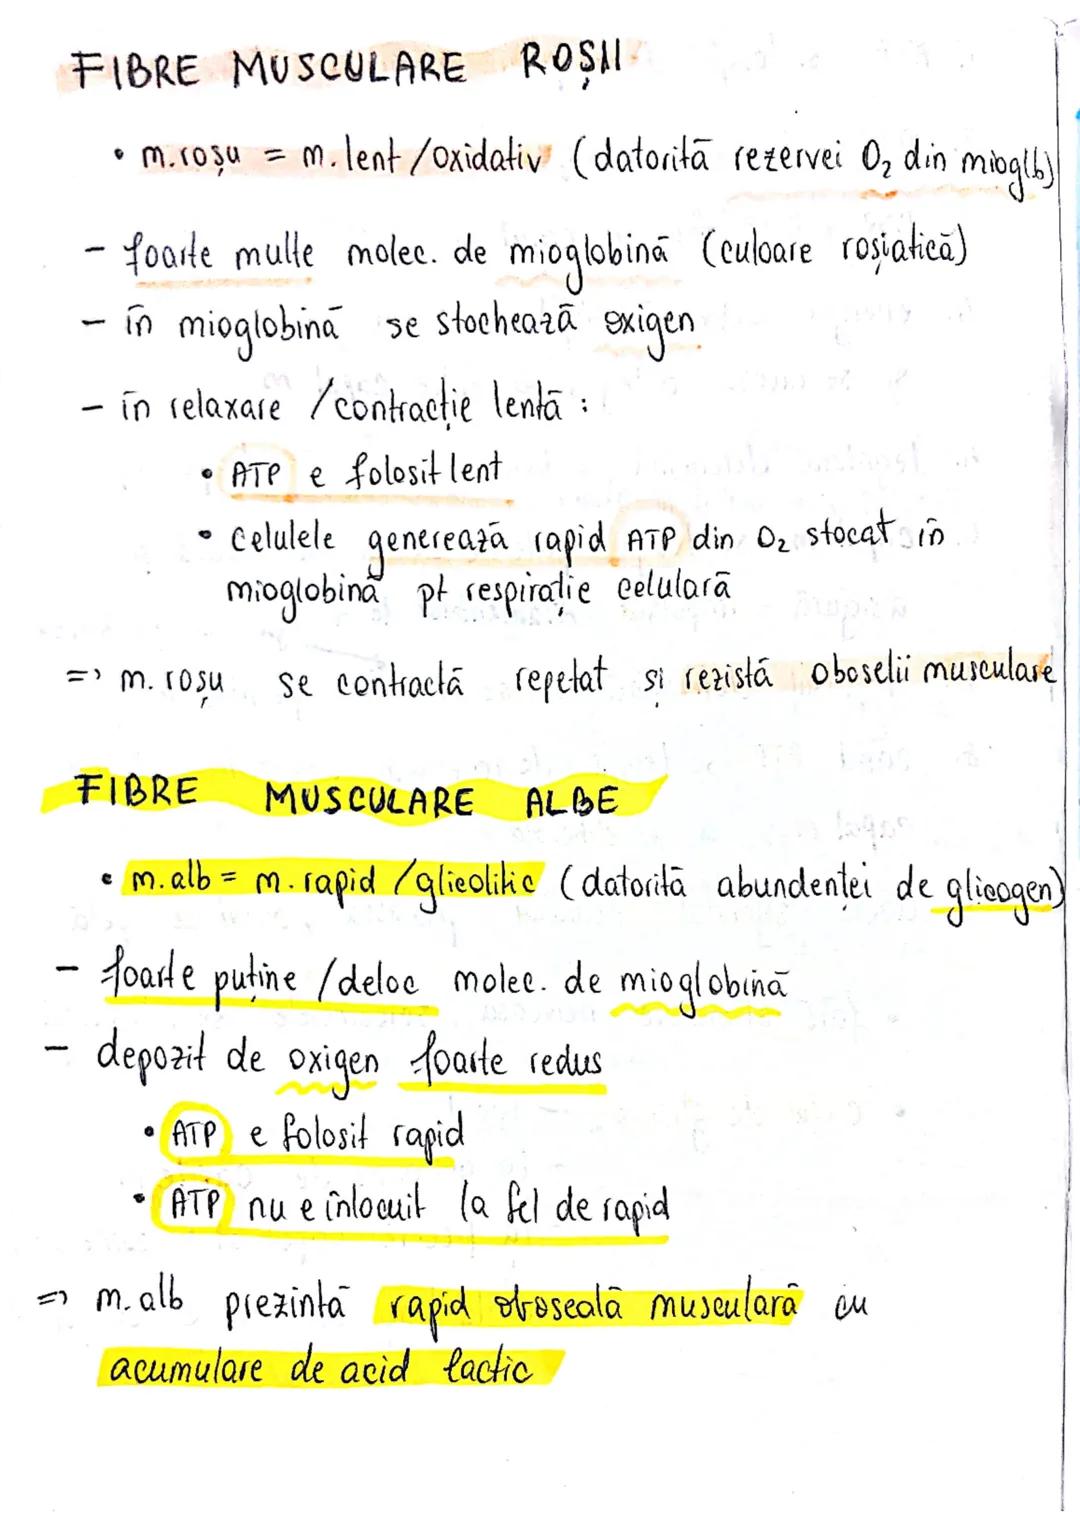 FIBRE MUSCULARE ROȘII
• m.roșu = m.lent/oxidativ (datorită rezervei O₂ din mioglb)
- foarte multe molec. de mioglobină (culoare roșiatică)
- în mioglobină se stochează oxigen
- în relaxare /contracție lentă :
• ATP e folosit lent
• celulele generează rapid ATP din O₂ stocat în
mioglobină pt respirație celulară
=> m. roșu se contractă repetat și rezistă oboselii musculare
FIBRE MUSCULARE ALBE
• m.alb = m.rapid /glicolitic (datorită abundenței de glicogen)
- foarte puține /deloc molec. de mioglobină
- depozit de oxigen foarte redus
• ATP e folosit rapid
• ATP nu e înlocuit la fel de rapid
=> m. alb prezintă rapid oboseală musculară cu
acumulare de acid lactic